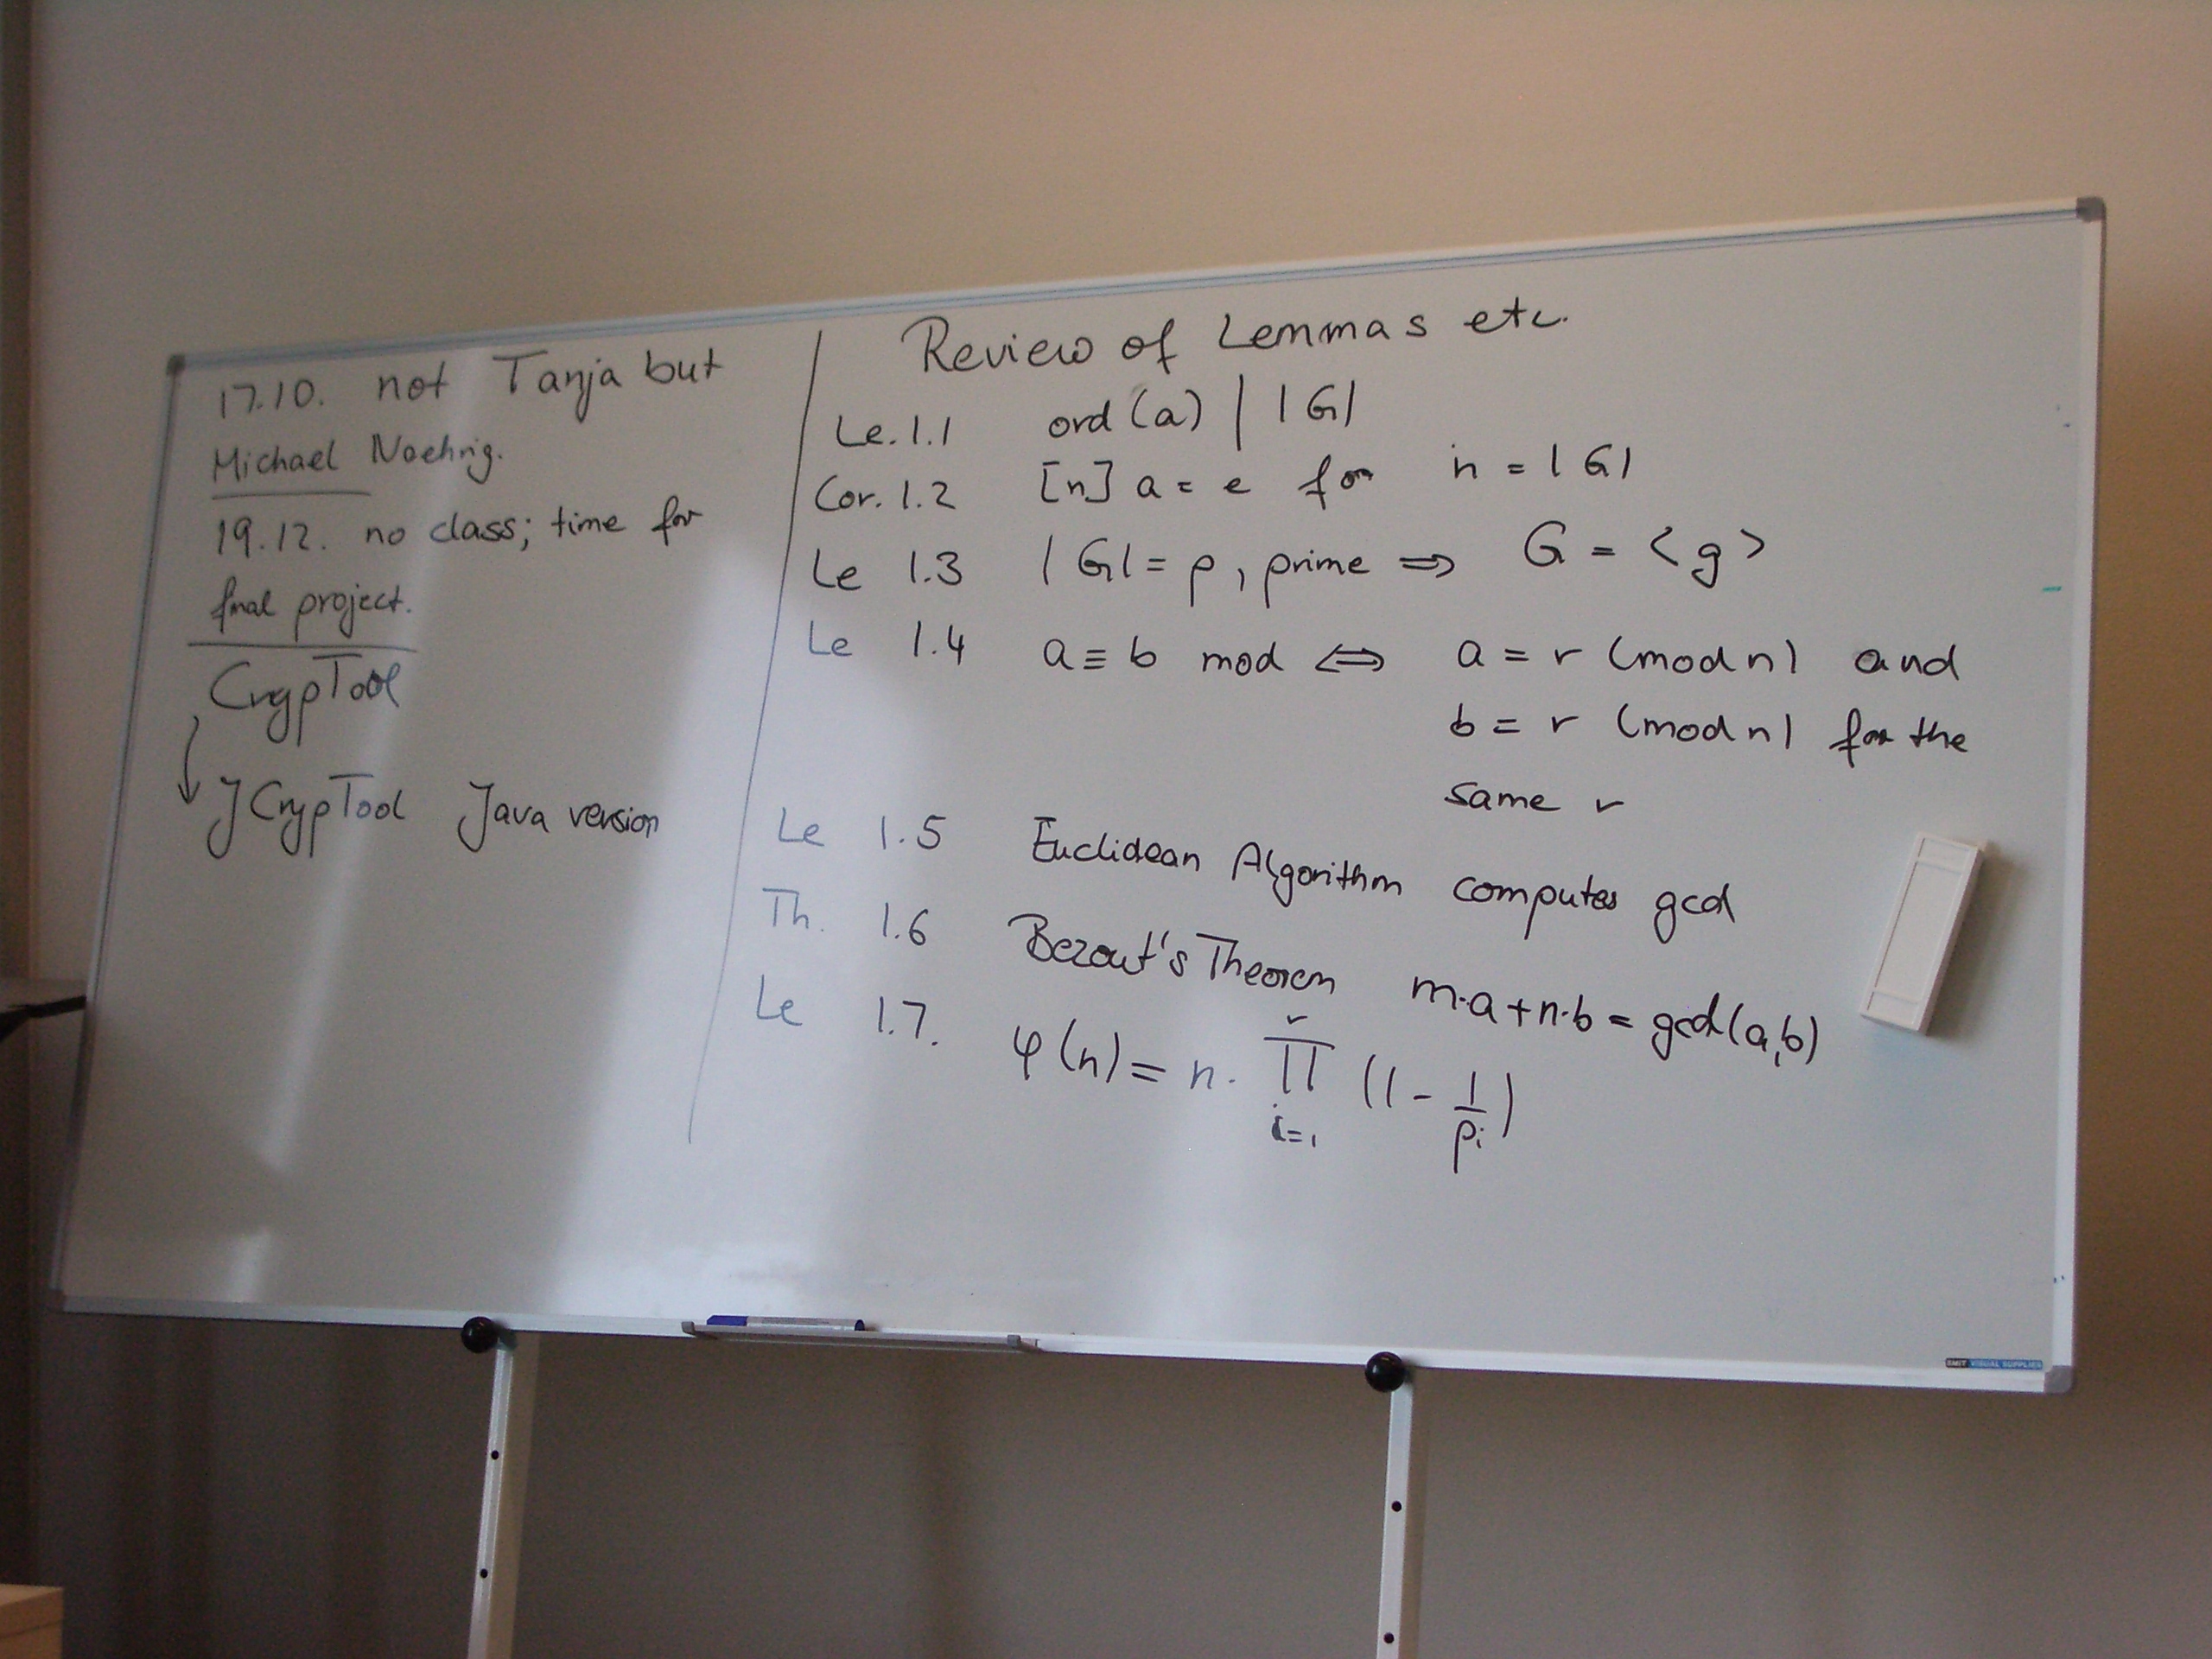 17.10. not Tanja but
Michael Naehrig.
19.12. no class; time for
final project.
CrypTool
↓ JCrypTool Java version
Review of Lemmas etc.
Le. 1.1 ord(a) | |G|
Cor. 1.2 [n] a = e for n = |G|
Le 1.3 |G| = p, prime ⇒ G = <g>
Le 1.4 a ≡ b mod ⇔ a = r (mod n) and
b = r (mod n) for the
same r
Le 1.5 Euclidean Algorithm computes gcd
Th. 1.6 Bezout's Theorem m·a+n·b = gcd(a,b)
Le 1.7. φ(n) = n · ∏_{i=1}^{r} (1 - 1/p_i)
SMIT VISUAL SUPPLIES